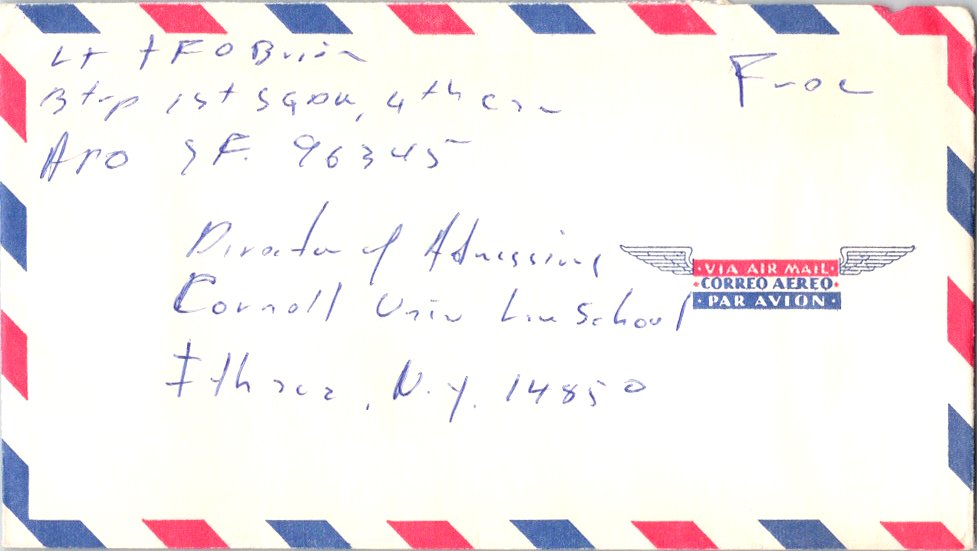 Lt T F O Brien
B trp 1st Sqdn, 4th Cav
APO SF. 96345
Free
Director of Admissions
Cornell Univ Law School
Ithaca, N.Y. 14850
VIA AIR MAIL
CORREO AEREO
PAR AVION